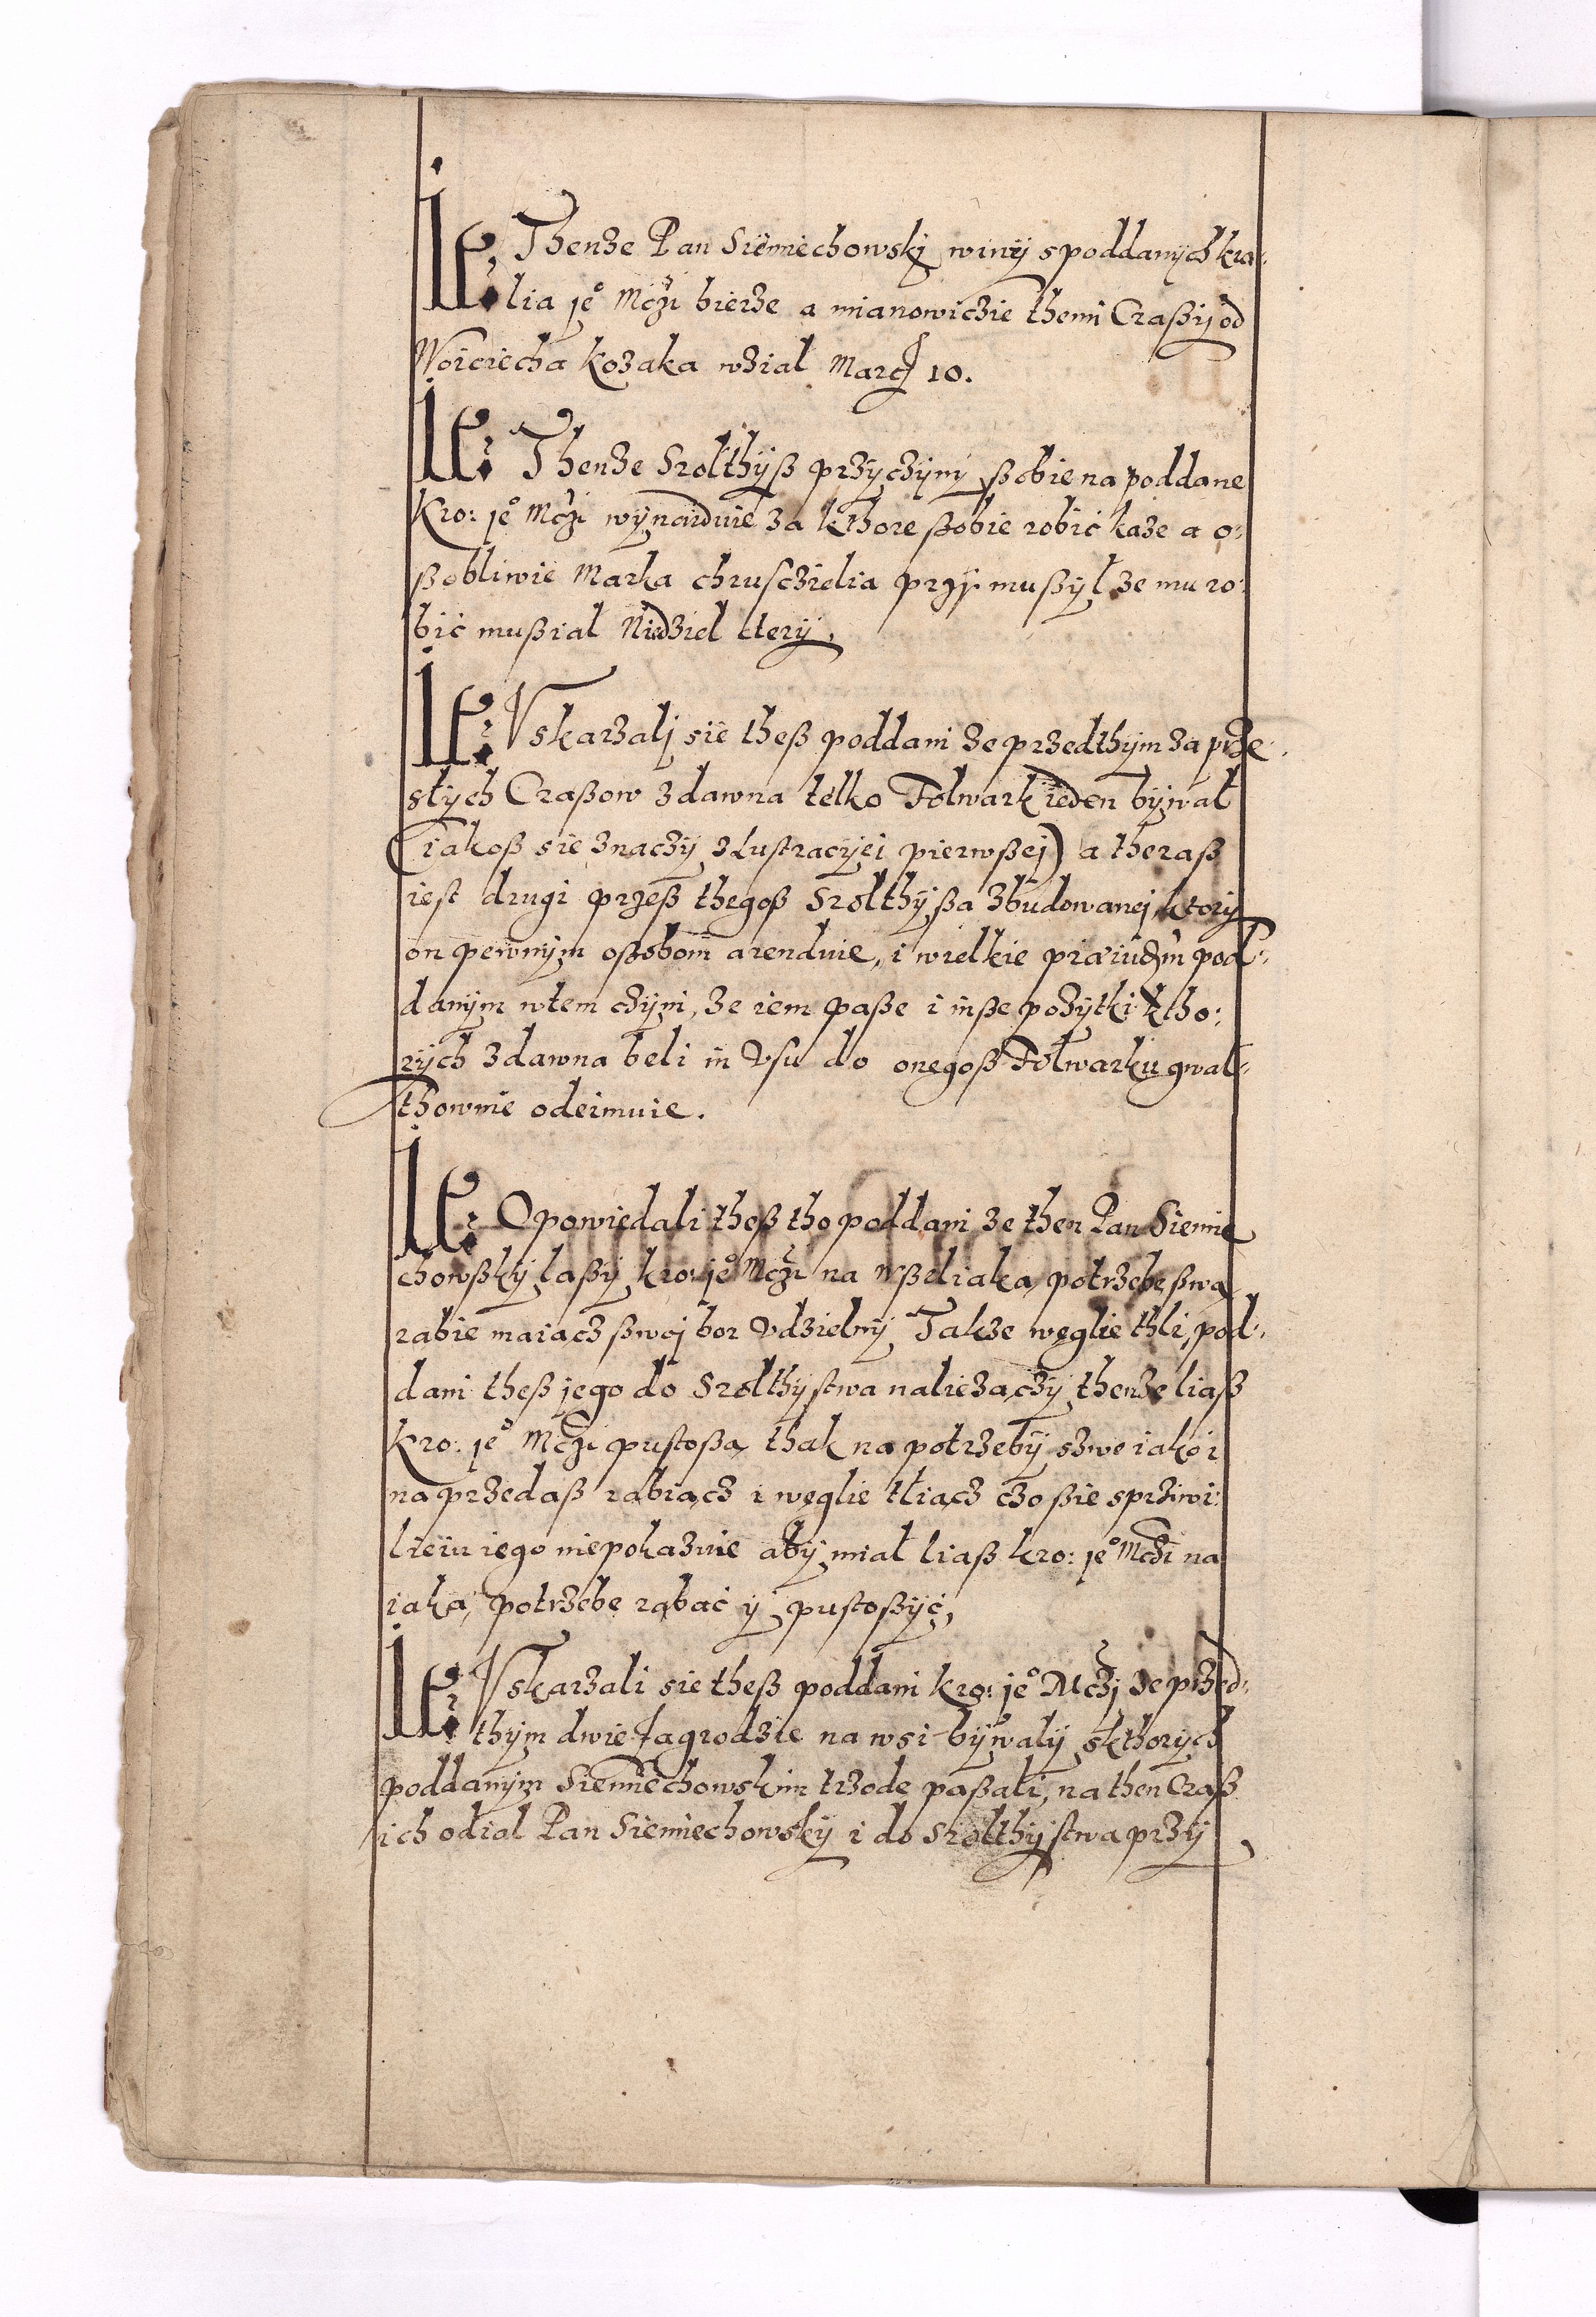 It: Thenze Pan Siemiechowskj winÿ s poddanÿch kra:
lia je° Mczi bierze a mianowiczie themi Craßÿ od
Woiciecha Kozaka wzial Marg 10.
It: Thenze Szolthÿß przÿczÿnÿ ßobie na poddane
Kro: je° Mczi wÿnaiduie za kthore ßobie robić kaze a o:
ßobliwie Marka chrusczielia przÿmußÿł ze mu ro:
bić mußial Niedziel cterÿ.
It: Vskarzalj sie theß poddani ze przedthÿm za prze:
słÿch Craßow zdawna telko Folwark ieden bÿwał
(iakoß sie znaczÿ z Lustracÿiej pierwßej) a theraß
iest drugi przeß thegoß Szolthÿßa zbudowanej, ktorÿ
on pewnÿm oßobom arenduie, i wielkie præiudm pod:
danÿm wtem czÿni, ze iem paße i inße pozÿtki ktho:
rÿch zdawna beli in Vsu do onegoß Folwarku gwal:
thownie odeimuie.
It: Opowiedali theß tho poddani ze then Pan Siemie
chowßkÿ laßÿ kro: je° Mczi na wßeliaką potrzebe ßwą
rabie maiącz ßwoj bor Vdzielnÿ Takze węglie thli, pod:
dani theß jego do Szolthÿstwa nalieząćzÿ thenze liaß
Kro: je° Mczi pustoßą thak na potrzebÿ szwe iako i
na przedaß rąbiącz i węglie tliącz czo ßie s prziwi:
lieiu iego niepokazuie abÿ miał liaß kro: je° Mczi na
iaką potrzebe rąbać ÿ pustoßÿć,
It: Vskarzali sie theß poddani kro: je° Mczj ze przed:
thÿm dwie zagrodzie na wsi bÿwalÿ s kthorÿch
poddanÿm Siemiechowskim trzode paßali, na then Craß
ich odial Pan Siemiechowskÿ i do Szolthÿstwa przÿ